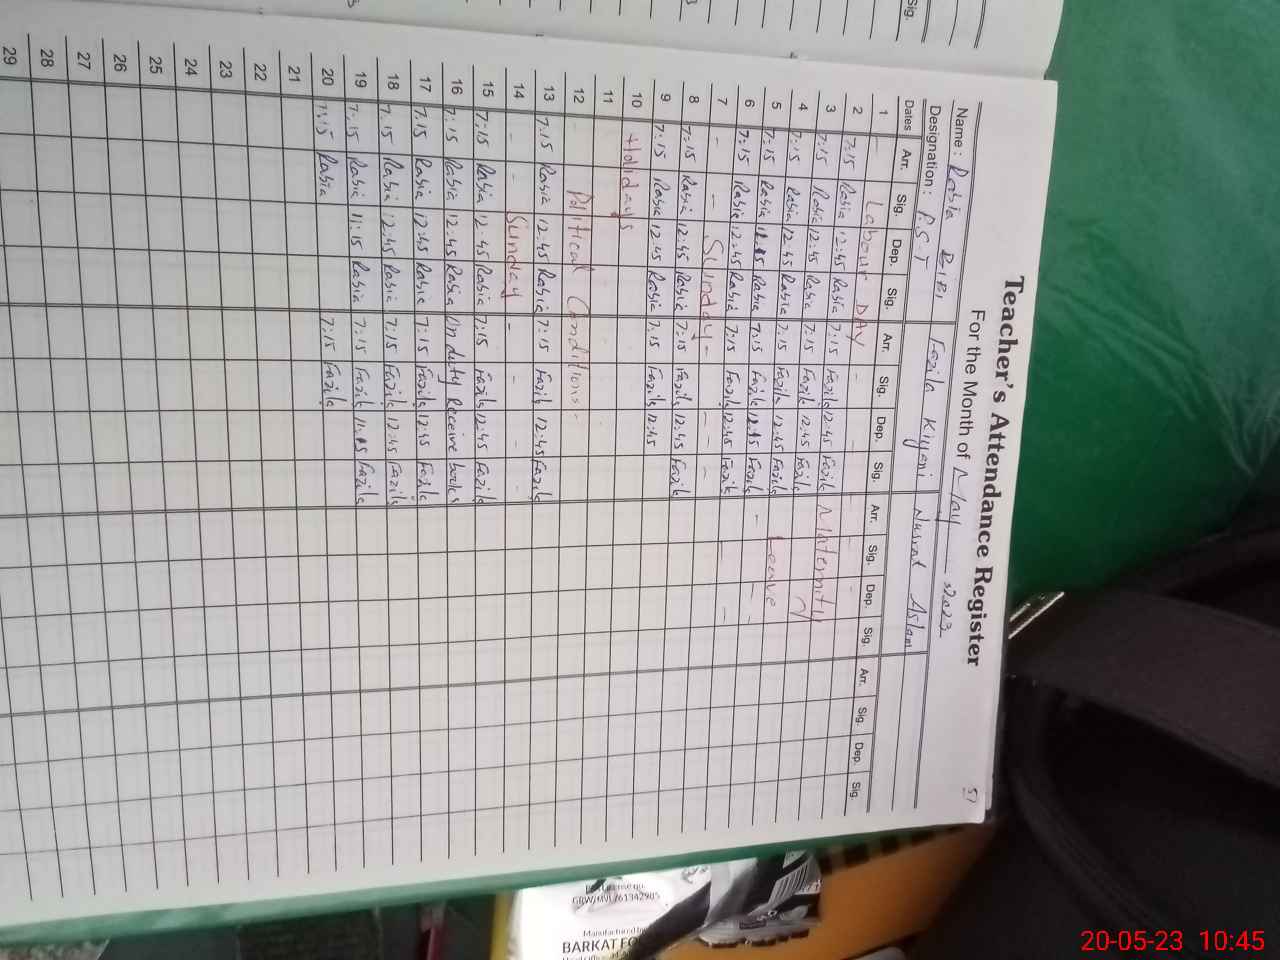 Sig.
Teacher's Attendance Register
For the Month of May 2023
51
Name: Rabia BiBi Fazila Kiyani Nusrat Aslam
Designation: P.S.T
Dates Arr. Sig. Dep. Sig. Arr. Sig. Dep. Sig. Arr. Sig. Dep. Sig. Arr. Sig. Dep. Sig.
1 - Labour DAY - - - -
2 7:15 Rabia 12:45 Rabia 7:15 Fazila 12:45 Fazila Maternity
3 7:15 Rabia 12:45 Rabia 7:15 Fazila 12:45 Fazila
4 7:15 Rabia 12:45 Rabia 7:15 Fazila 12:45 Fazila Leave
5 7:15 Rabia 12:45 Rabia 7:15 Fazila 12:45 Fazila - - -
6 7:15 Rabia 12:45 Rabia 7:15 Fazila 12:45 Fazila - -
7 - - Sunday - - - -
8 7:15 Rabia 12:45 Rabia 7:15 Fazila 12:45 Fazila
9 7:15 Rabia 12:45 Rabia 7:15 Fazila 12:45
10 Holidays
11
12 - Political Conditions -
13 7:15 Rabia 12:45 Rabia 7:15 Fazila 12:45 Fazila
14 - - Sunday - - - -
15 7:15 Rabia 12:45 Rabia 7:15 Fazila 12:45 Fazila
16 7:15 Rabia 12:45 Rabia On duty Receive books
17 7:15 Rabia 12:45 Rabia 7:15 Fazila 12:45 Fazila
18 7:15 Rabia 12:45 Rabia 7:15 Fazila 12:45 Fazila
19 7:15 Rabia 11:15 Rabia 7:15 Fazila 11:15 Fazila
20 7:15 Rabia 7:15 Fazila
21
22
23
24
25
26
27
28
29
GRW/MVL/61342905
Manufactured by
BARKAT FO
20-05-23 10:45